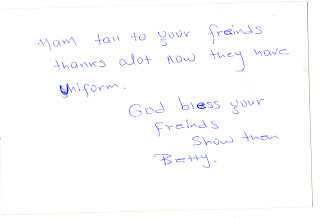 Mam tall to your freinds
thanks alot now they have
Uniform.
God bless your
Freinds
Show then
Betty.